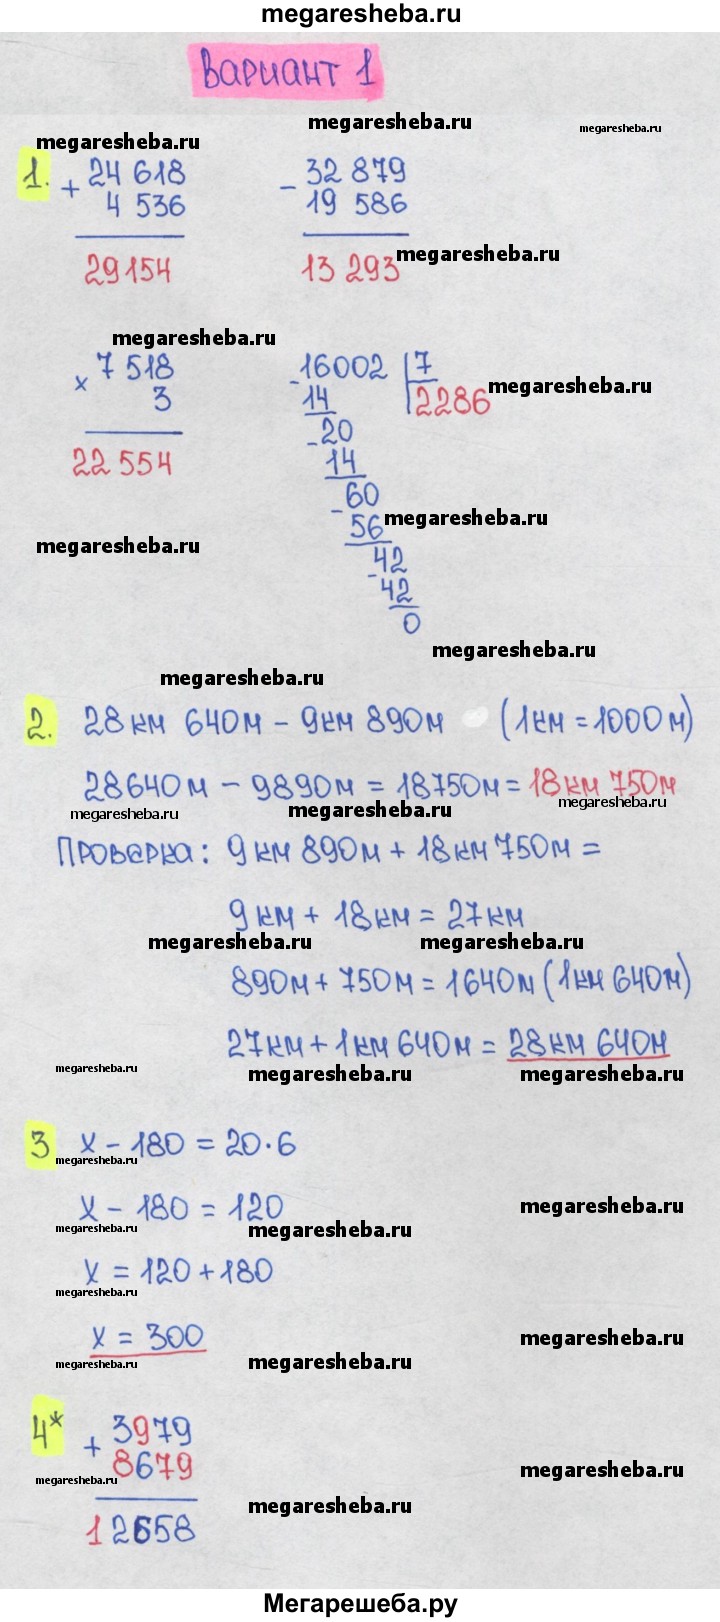 megaresheba.ru
Вариант 1
megaresheba.ru megaresheba.ru megaresheba.ru
1. + 24 618 - 32 879
4 536 19 586
megaresheba.ru
29154 13 293
megaresheba.ru
× 7 518 - 16002 7
3 2286
megaresheba.ru
14
- 20
22 554 14
- 60
56
megaresheba.ru
megaresheba.ru
- 42
42
0
megaresheba.ru
megaresheba.ru
2. 28 км 640м - 9км 890м (1км = 1000м)
28640м - 9890м = 18750м = 18км 750м
megaresheba.ru megaresheba.ru megaresheba.ru
Проверка: 9км 890м + 18км 750м =
9км + 18км = 27км
megaresheba.ru megaresheba.ru
890м + 750м = 1640м (1км 640м)
27км + 1км 640м = 28км 640м
megaresheba.ru megaresheba.ru megaresheba.ru
3 x - 180 = 20·6
megaresheba.ru
x - 180 = 120
megaresheba.ru megaresheba.ru megaresheba.ru
x = 120 + 180
megaresheba.ru
x = 300
megaresheba.ru megaresheba.ru megaresheba.ru
4* + 3979
8679
megaresheba.ru megaresheba.ru megaresheba.ru
12658
Мегарешеба.ру